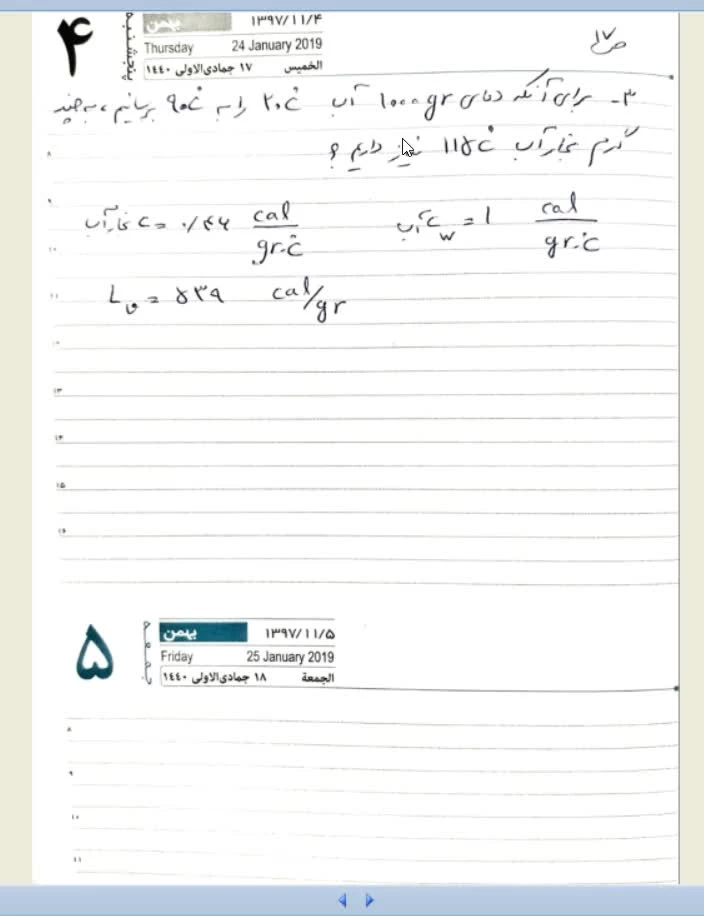 ۴
پنجشنبه
بهمن ۱۳۹۷/۱۱/۴
Thursday 24 January 2019
الخميس ١٧ جمادی‌الاولی ١٤٤٠
ص ۱۷
۳- برای آنکه دمای 1000gr آب ۲۰°C را به ۹۰°C برسانیم، به چند
گرم بخار آب ۱۱۵°C نیاز داریم؟
آب Cw = 1 cal/gr.°C
بخار آب C = ۰/۴۶ cal/gr.°C
Lv = ۵۳۹ cal/gr
۸
۹
۱۰
۱۱
۱۲
۱۳
۱۴
۱۵
۱۶
۵
جمعه
بهمن ۱۳۹۷/۱۱/۵
Friday 25 January 2019
الجمعة ١٨ جمادی‌الاولی ١٤٤٠
۸
۹
۱۰
۱۱